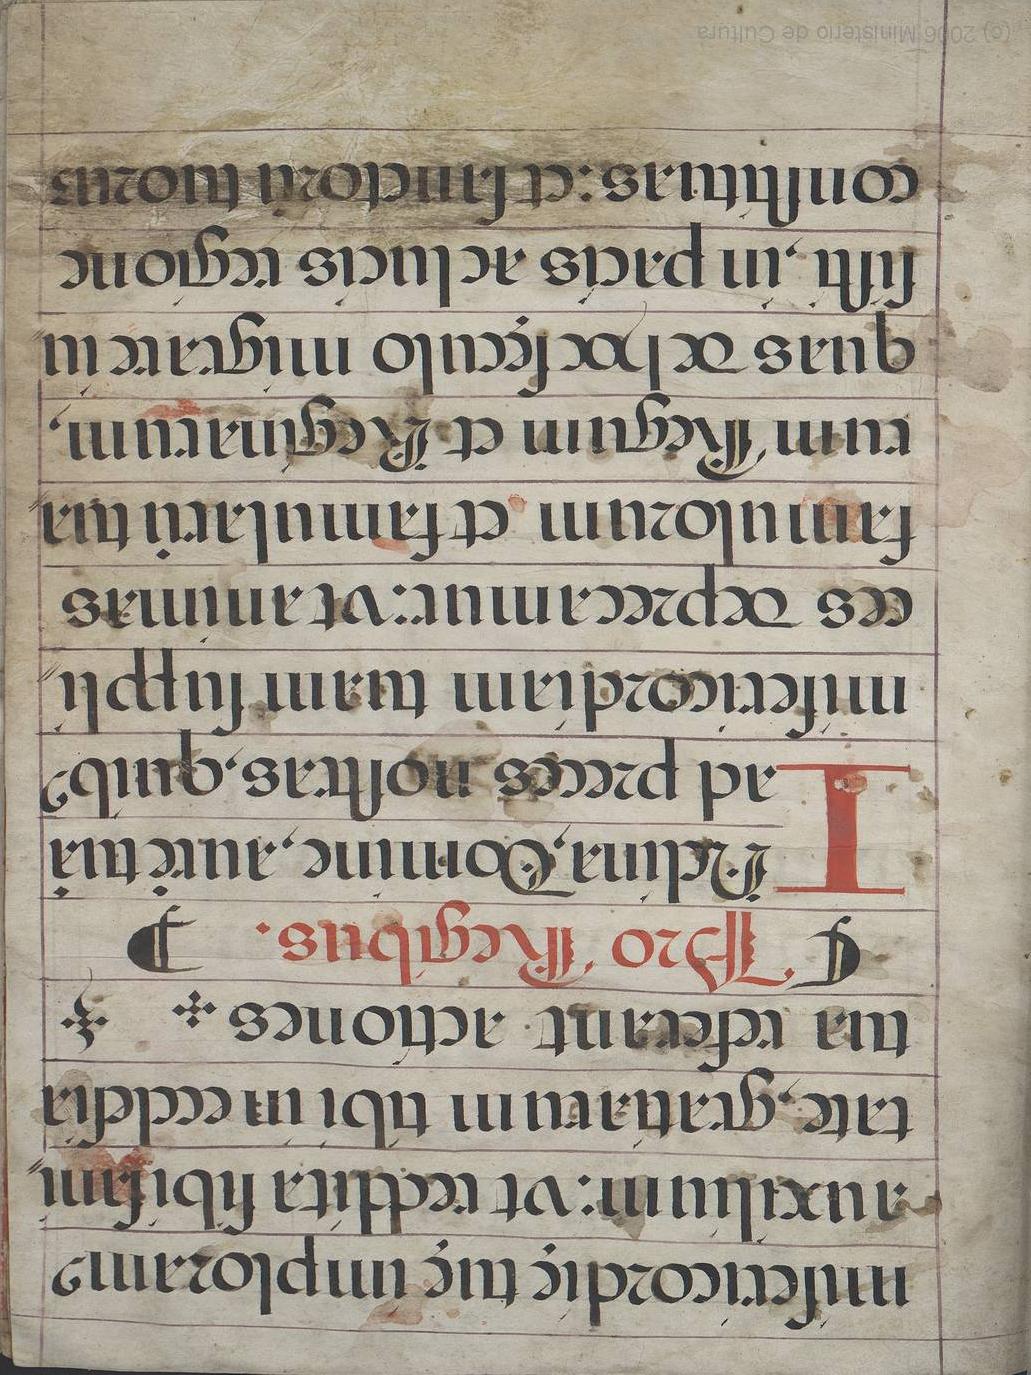 misericordię tuę imploram9
auxilium: vt reddita sibi sani=
tate, gratiarum tibi in ecclesia
tua referant actiones
Pro Regibus.
INclina, Domine, aurē tuā
ad preces nostras, quib9
misericordiam tuam suppli=
ces deprecamur: vt animas
famulorum et famularū tua=
rum Regum et Reginarum,
quas de hoc sęculo migrare iu=
sisti, in pacis ac lucis regione
constituas: et sanctorū tuorum
(c) 2006 Ministerio de Cultura